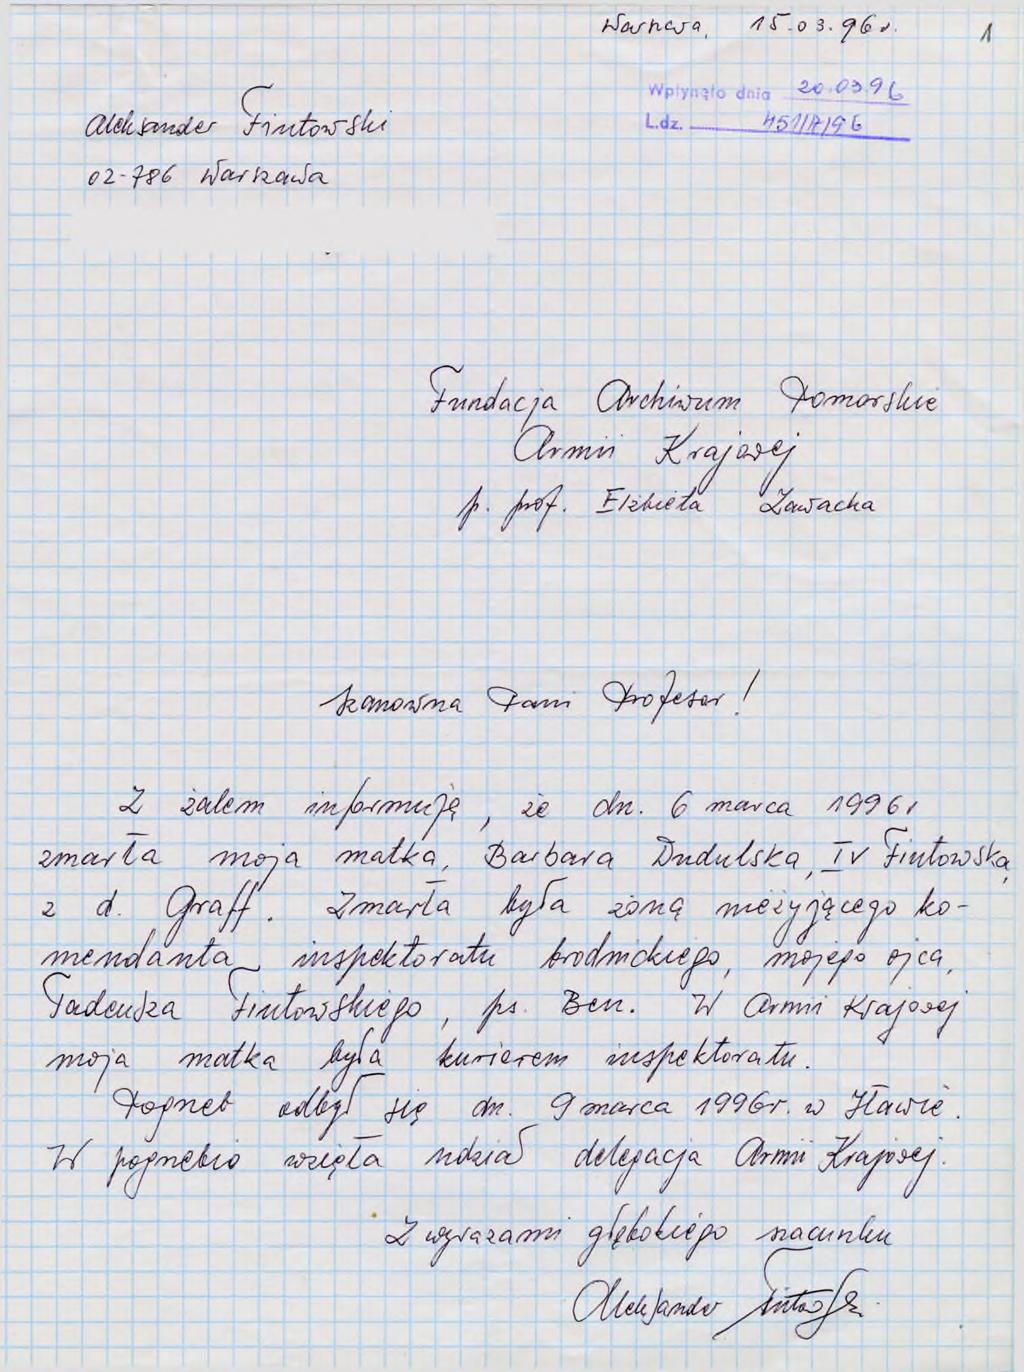 Warszawa, 15.03.96r.
1
Wpłynęło dnia 20.03.96
L.dz. 451/A/96
Aleksander Fintowski
02-786 Warszawa
Fundacja Archiwum Pomorskie
Armii Krajowej
p. prof. Elżbieta Zawacka
Szanowna Pani Profesor!
Z żalem informuję, że dn. 6 marca 1996r
zmarła moja matka, Barbara Dudulska, IV Fintowska,
z d. Graff. Zmarła była żoną nieżyjącego ko-
mendanta inspektoratu brodnickiego, mojego ojca,
Tadeusza Fintowskiego, ps. Ben. W Armii Krajowej
moja matka była kurierem inspektoratu.
Pogrzeb odbył się dn. 9 marca 1996r. w Iławie.
W pogrzebie wzięła udział delegacja Armii Krajowej.
Z wyrazami głębokiego szacunku
Aleksander Fintowski